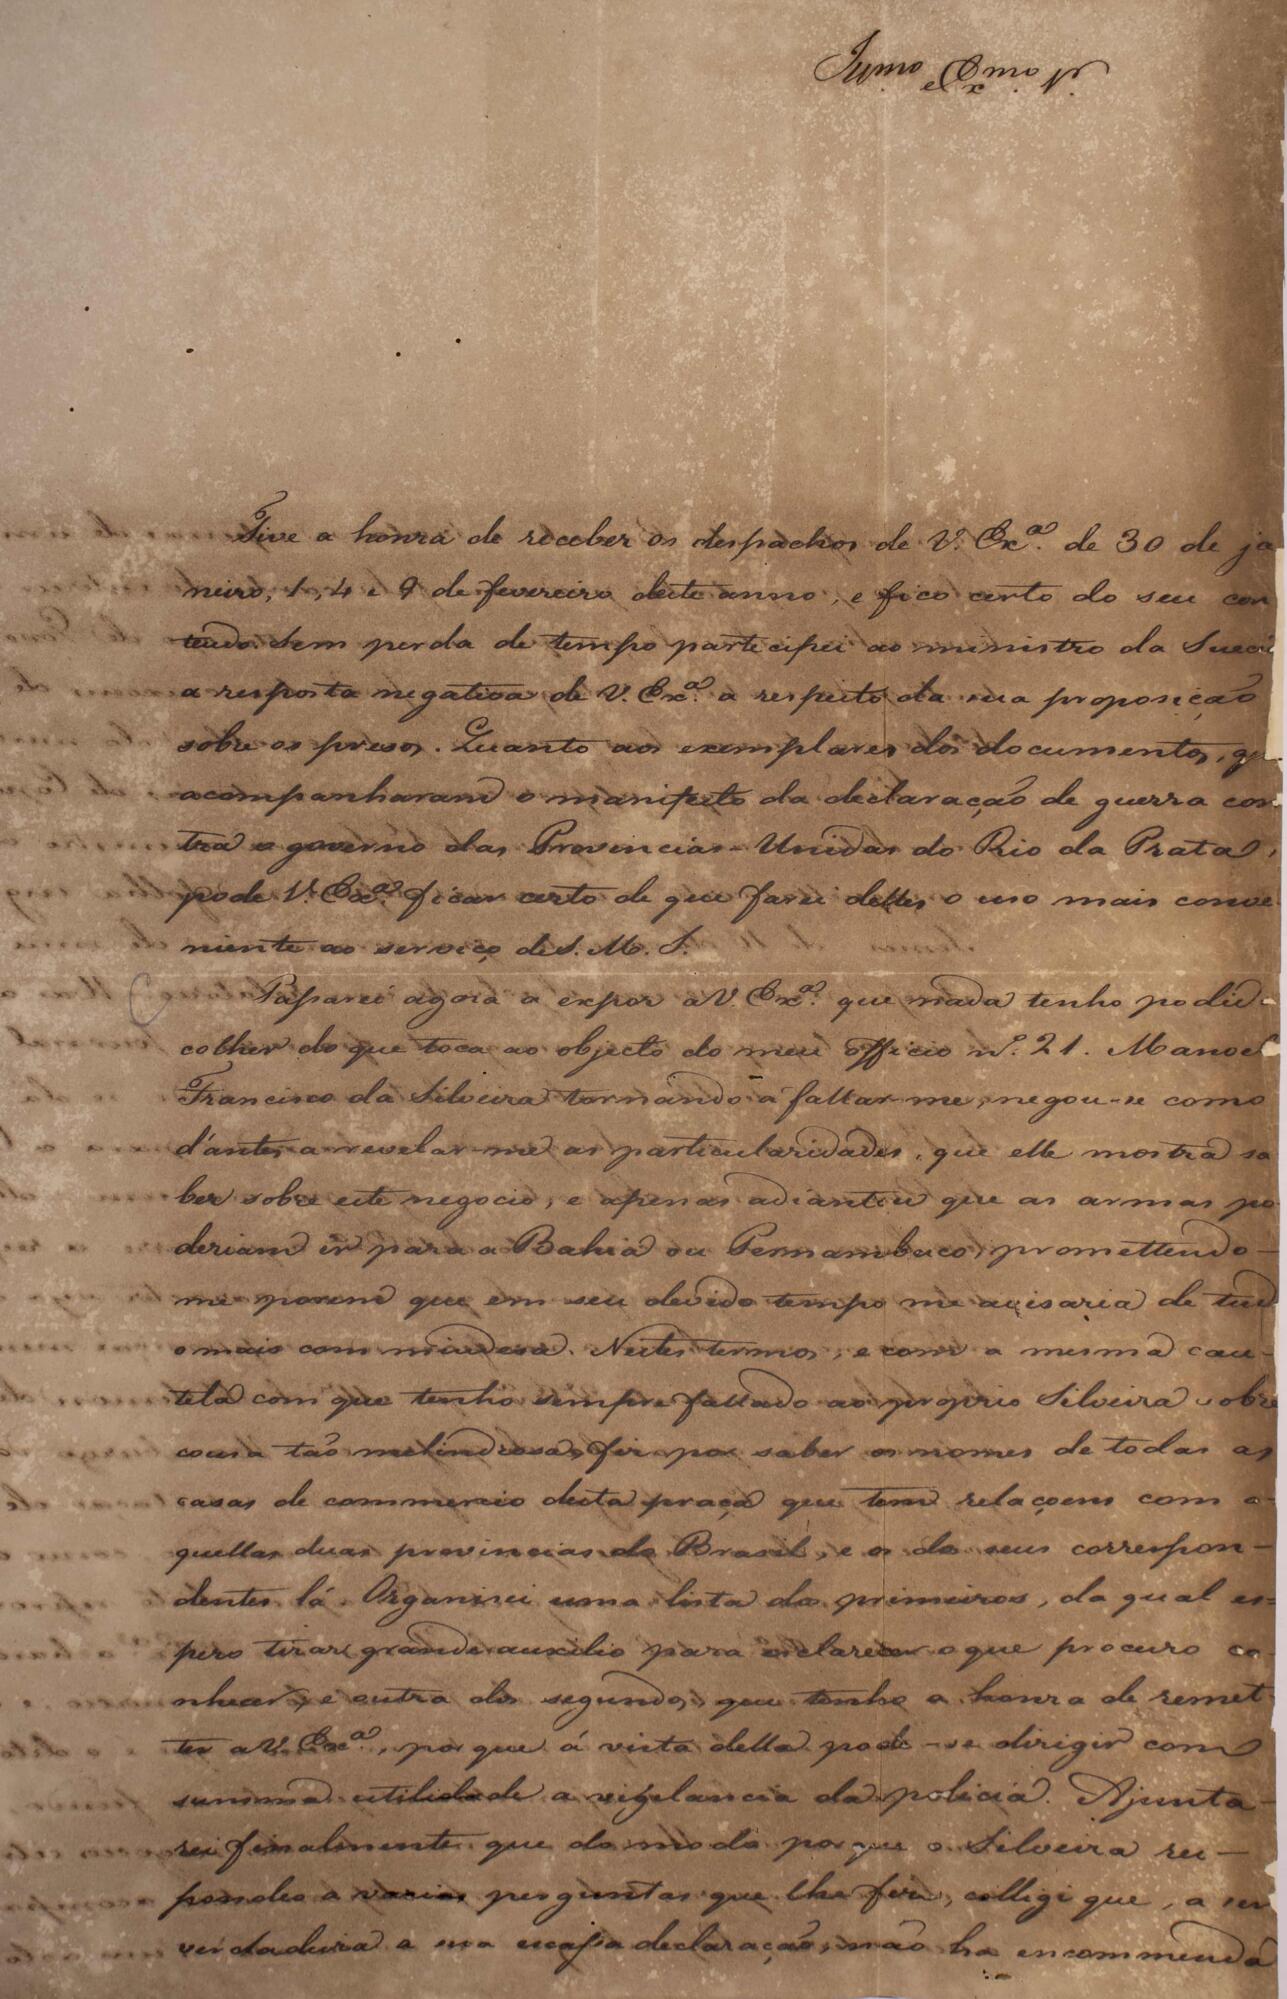 Illmo e Exmo N.
Tive a honra de receber os despachos de V. Exª. de 30 de ja
neiro, 1, 4 e 9 de fevereiro deste anno, e fico certo do seu con
teudo. Sem perda de tempo participei ao ministro da Sueci
a resposta negativa de V. Exª. a respeito da sua proposição
sobre os presos. Quanto aos exemplares dos documentos, que
acompanharam o manifesto da declaração de guerra con
tra o governo das Provincias-Unidas do Rio da Prata,
pode V. Exª. ficar certo de que farei delles o uso mais conve
niente ao serviço de S. M. I.
Passarei agora a expor a V. Exª. que nada tenho podido
colher do que toca ao objecto do meu officio nº. 21. Manoel
Francisco da Silveira tornando a fallar-me, negou-se como
d'antes a revelar-me as particularidades, que elle mostra sa
ber sobre este negocio, e apenas adiantou que as armas po
deriam ir para a Bahia ou Pernambuco, promettendo-
me porem que em seu devido tempo me avisaria de tud
o mais com miudesa. Nestes termos, e com a mesma cau-
tela com que tenho sempre fallado ao proprio Silveira sobre
cousa tão melindrosa, fiz por saber os nomes de todas as
casas de commercio desta praça que tem relaçoens com a-
quellas duas provincias do Brasil, e os de seus correspon-
dentes lá. Organisei uma lista dos primeiros, da qual es-
pero tirar grande auxilio para esclarecer o que procuro co-
nhecer, e outra dos segundos, que tenho a honra de remet-
ter a V. Exª., porque á vista della pode-se dirigir com
summa utilidade a vigilancia da policia. Ajunta-
rei finalmente que do modo porque o Silveira res-
pondeo a varias perguntas que lhe fiz, colligi que, a ser
verdadeira a sua escassa declaração, não ha encommenda